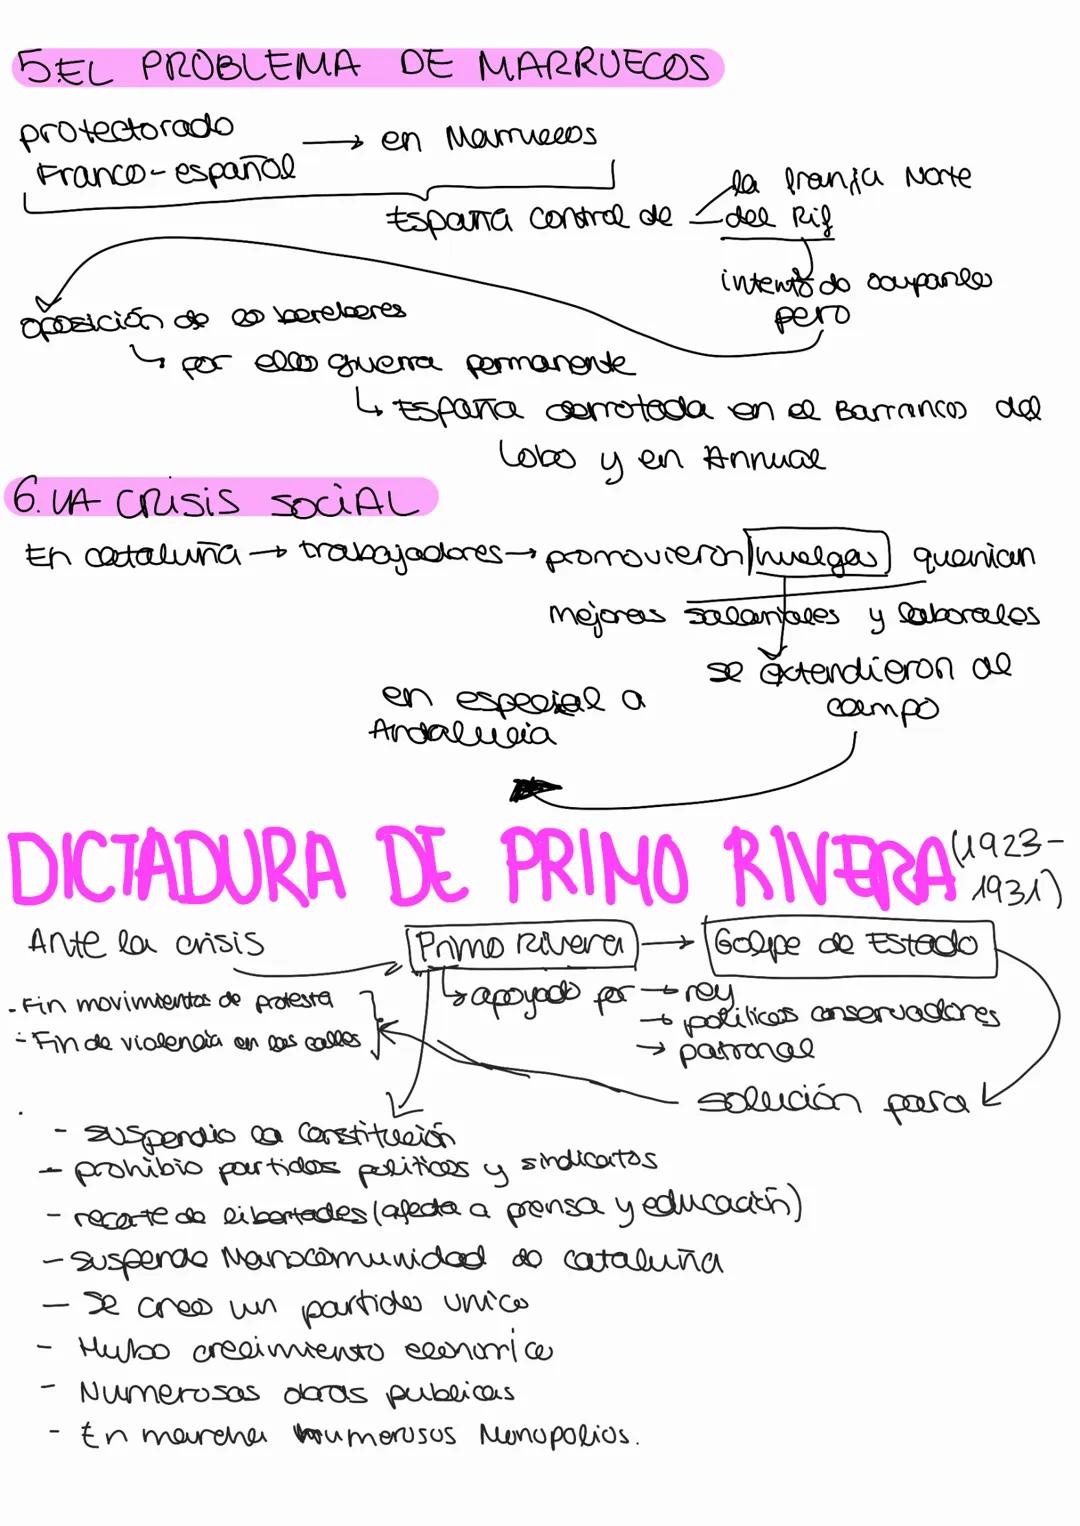 5.EL PROBLEMA DE MARRUECOS
protectorado
Franco-español → en Marruecos
España control de la franja Norte
del Rif
intentó do ocuparlo
pero
oposición de los bereberes
↳ por ello guerra permanente
↳ España derrotada en el Barranco del
Lobo y en Annual
6. LA CRISIS SOCIAL
En cataluña → trabajadores → promovieron huelgas querian
mejoras salariales y laborales
se extendieron al
campo
en especial a
Andalucia
DICTADURA DE PRIMO RIVERA (1923-
1931)
Ante la crisis Primo Rivera → Golpe de Estado
- Fin movimientos de protesta
- Fin de violencia en las calles
↳ apoyado por → rey
→ politicos conservadores
→ patronal
solución para
- suspendio la Constitución
- prohibio partidos politicos y sindicatos
- recorte de libertades (afecta a prensa y educación)
- suspende Mancomunidad de cataluña
- Se creo un partido unico
- Hubo crecimiento economico
- Numerosas obras publicas
- En marcha numerosos Monopolios.